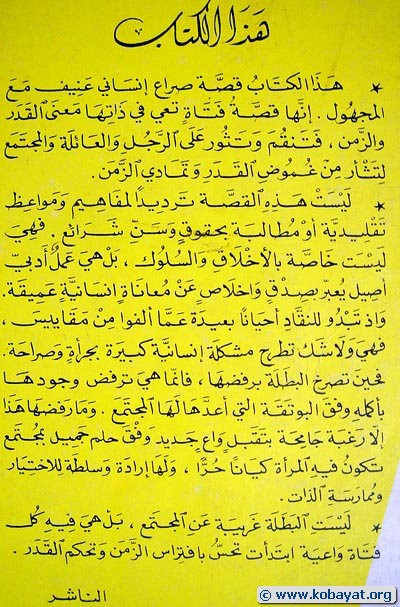 هَذا الكتاب
* هَذا الكتابُ قصّة صراع إنسَاني عَنيف مَعَ
المجهُول . إنهَّا قصّةُ فتَاةٍ تعي في ذَاتِهَا مَعنىَ القدَر
والزّمن ، فَتنقُم وَتثور عَلى الرَّجُل والعَائلة والمجتمَع
لِتثْأر مِنْ غمُوض القدَر وَتمَادي الزّمَن .
* لَيسَتْ هَذِهِ القصّة تَردِيدًا لمفاهِيم وَموَاعِظ
تَقْليديَّة أوْ مُطالبَة بحقوُقٍ وَسَنّ شَرائع . فهيَ
لَيسَت خَاصَّة بالأخلَاق وَالسُلوك ، بَل هيَ عَملٌ أدَبيّ
أصيل يُعبّر بصِدْقٍ وَاخلَاص عَنْ مُعانَاةٍ انسَانيَّةٍ عَميقة .
وَاذ تبْدُو للنقَّادِ أحيَانًا بعيدَة عَمَّا ألفوا مِنْ مَقاييس ،
فهيَ وَلَا شَك تَطرح مشكلة إنسَانيَّة كبيرَة بجُرأةٍ وَصَراحَة .
فحينَ تصرخ البَطلة برفضِهَا ، فانّما هيَ ترفضُ وجودهَا
بأكمَلِه وفقَ البوتقة التي أعدّهَا لهَا المجتمَع . وَمَا رَفضهَا هَذا
إلّا رَغبَة جَامِحَة بتَقبّل وَاعٍ جَديد وَفْقَ حلم جَميل بمُجتمَعٍ
تكونُ فيهِ المرأة كيَانًا حُرًّا ، وَلهَا إرَادَة وَسُلطَة للاختِيَار
وَمُمارسَةِ الذات .
* لَيسَتِ البَطلة غَريبَة عَنِ المجتمَع ، بَل هيَ فيهِ كُل
فتاة وَاعيَة ابتدَأت تحسُّ بافتِراس الزّمَن وَتحكم القدَر .
الناشر
© www.kobayat.org